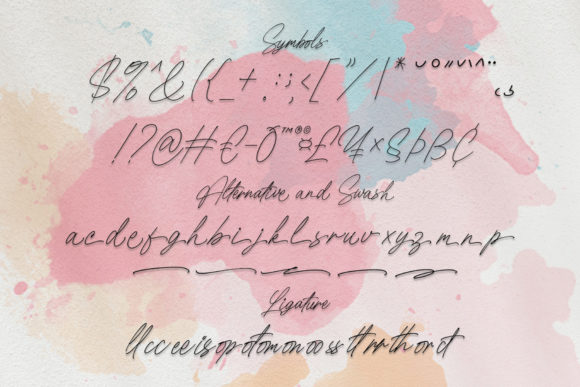 Symbols
$%^&({_+.:;<["/|*
!?@#€-Ծ™®©¤£¥×§þß₵
Alternative and Swash
a c d e f g h b i j k l s r u v x y z m n p
Ligature
ll cc ee is op ot om on oo ss tt rr th or ct